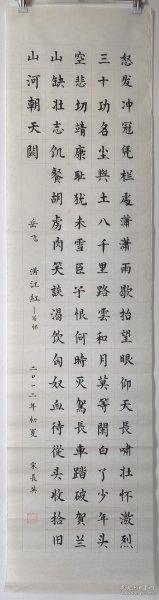 怒发冲冠凭栏处萧萧雨歇抬望眼仰天長啸壮怀激烈
三十功名尘與土八千里路雲和月莫等閑白了少年头
空悲切靖康耻犹未雪臣子恨何時灭駕長車踏破贺兰
山缺壮志饥餐胡虏肉笑談渴饮匈奴血待從头收拾旧
山河朝天闕
岳飞 满江紅—写怀 二〇一二年初夏 宋長英